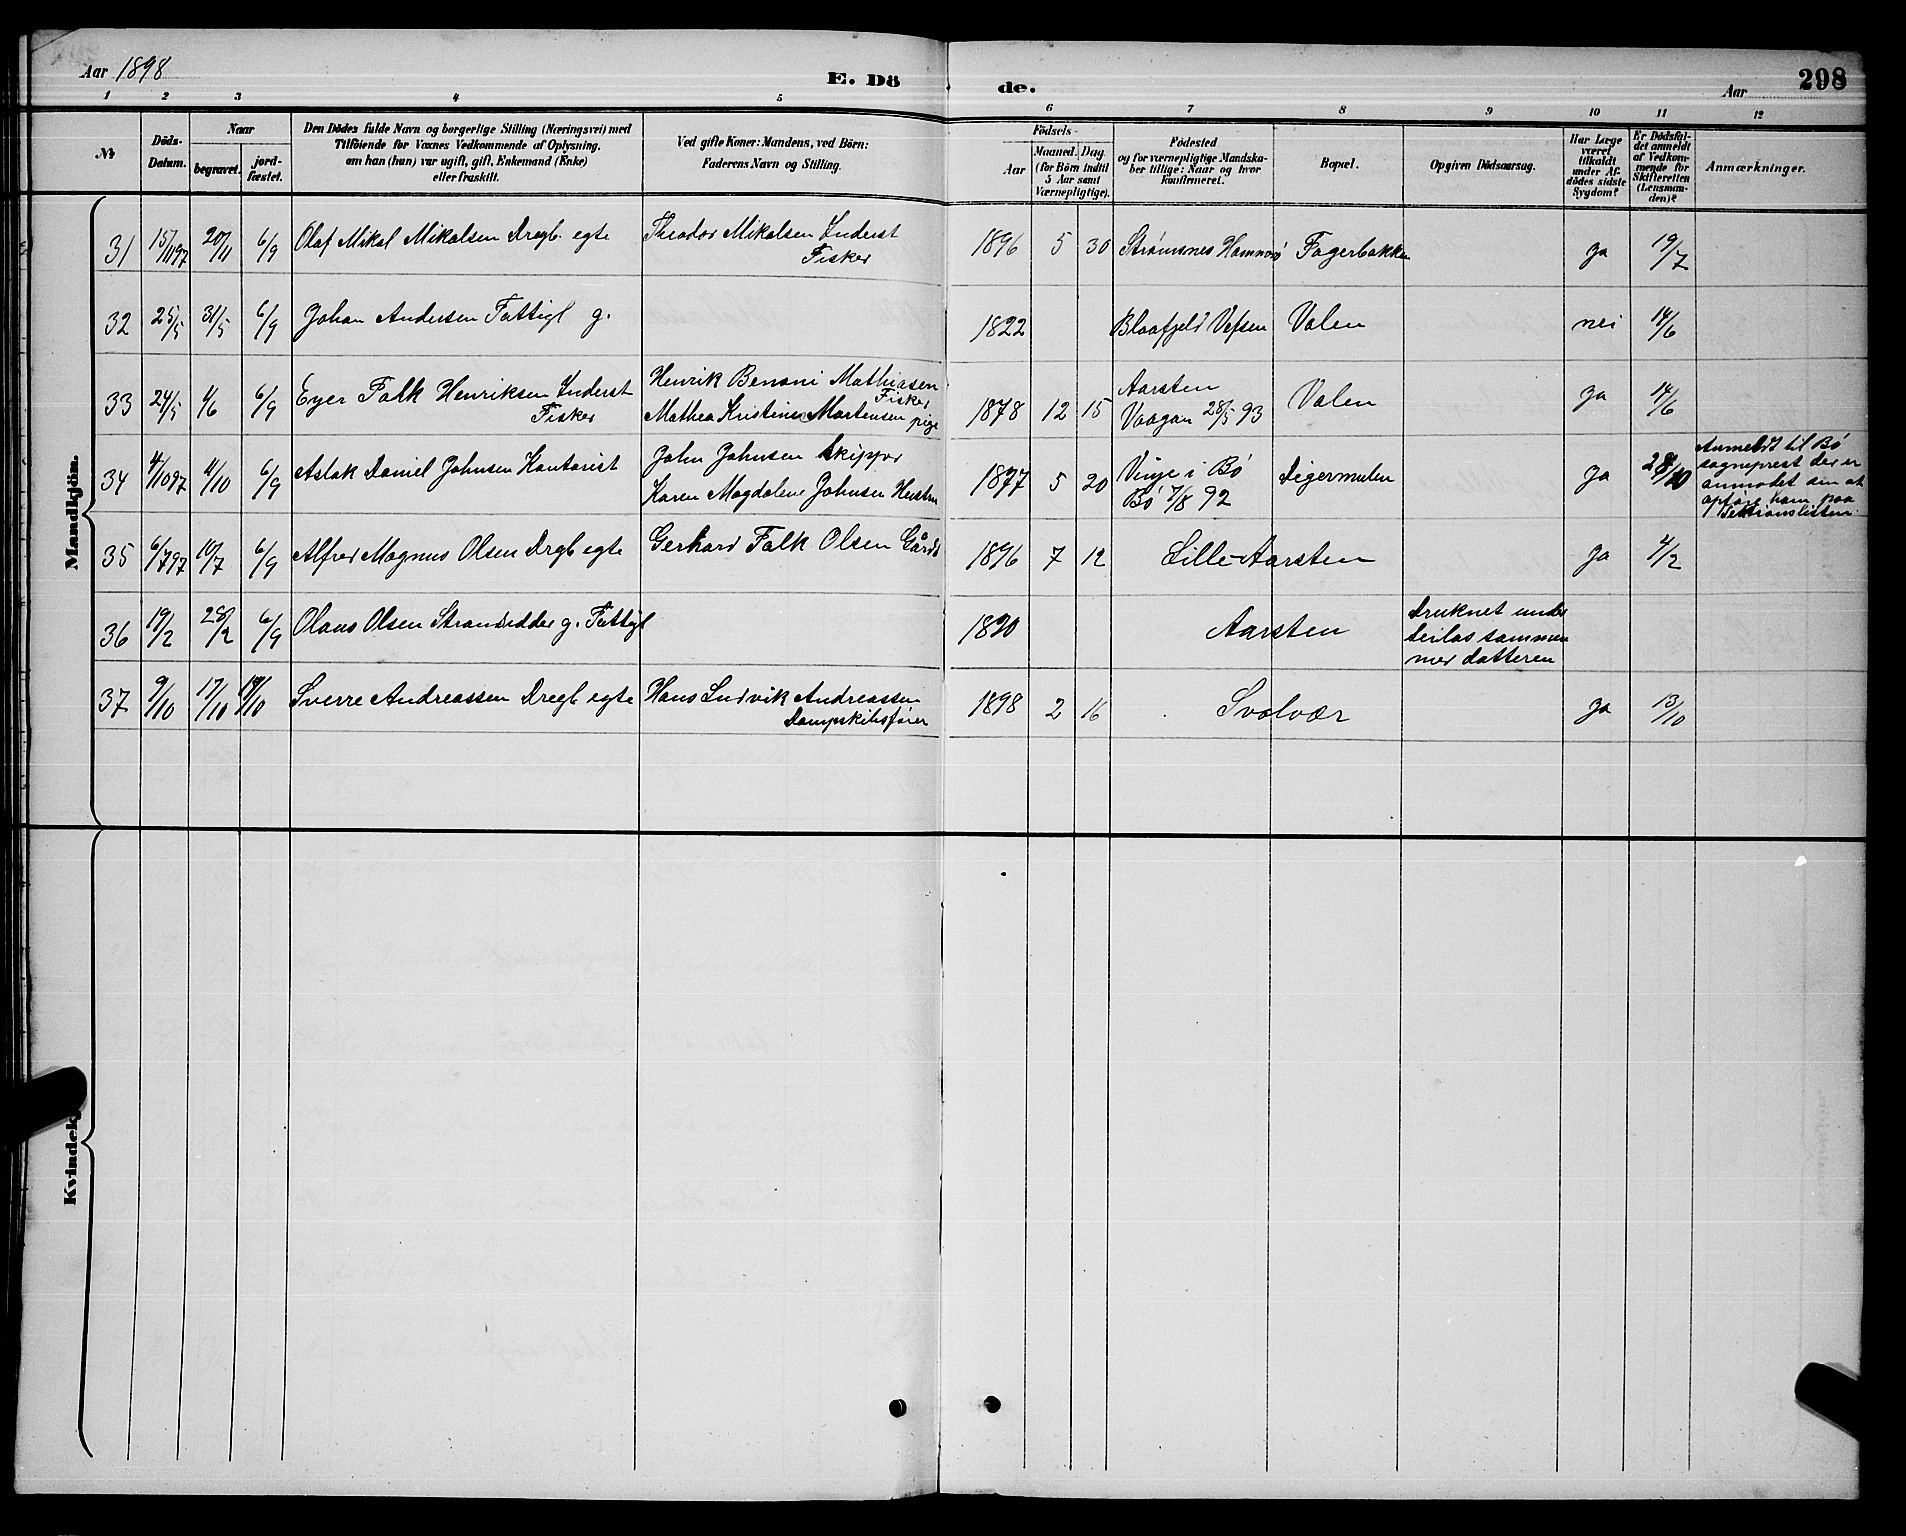 Aar 1898
E. Dö
de.
Aar
298
1 2 3 4 5 6 7 8 9 10 11 12
№
Döds-
Datum.
Naar
begravet.
jord-
fæstet.
Den Dödes fulde Navn og borgerlige Stilling (Næringsvei) med
Tilföiende for Voxnes Vedkommende af Oplysning.
om han (hun) var ugift, gift, Enkemand (Enke)
eller fraskilt.
Ved gifte Koner: Mandens, ved Börn:
Faderens Navn og Stilling.
Födsels-
Aar
Maaned. Dag
(for Börn indtil
5 Aar samt
Værnepligtige).
Födested
og for værnepligtige Mandska-
ber tillige: Naar og hvor
konfirmeret.
Bopæl.
Opgiven Dödsaarsag.
Har Læge
været
tilkaldt
under Af-
dödes sidste
Sygdom?
Er Dödsfal-
det anmeldt
af Vedkom-
mende for
Skifteretten
(Lensman-
den)?
Anmærkninger.
Mandkjön.
31 15/11 97 20/11 6/9 Olaf Mikal Mikalsen Dregb. egte Theodor Mikalsen Inderst
Fisker
1896 5 30 Strømsnes Hammerø Fagerbakken ja 19/7
32 25/5 31/5 6/9 Johan Andersen Fattigl g. 1822 Blaafjeld Vefsen Valen nei 14/6
33 24/5 4/6 6/9 Eyer Falk Henriksen Inderst
Fisker
Henrik Benoni Mathiasen
Fisker
Mathea Kristine Martensen pige
1878 12 15 Aarsten
Vaagan 28/5 93
Valen ja 14/6
34 4/10 97 11/10 6/9 Aslak Daniel Johnsen Kontorist John Johnsen Skipper
Karen Magdalene Johnsen Hustru
1877 5 20 Vinje i Bø
Bø 7/8 92
Digermulen ja 28/10
Anmeldt til Bø
sogneprest der er
anmodet om at
opføre ham paa
35 6/7 97 10/7 6/9 Alfred Magnus Olsen Drgb egte Gerhard Falk Olsen Gårdb 1896 7 12 Lille-Aarsten ja 4/2
36 19/2 28/2 6/9 Olaus Olsen Strandsidder g. Fattigl 1820 Aarsten
Druknet under
seilas sammen
med datteren
37 9/10 17/10 19/10 Sverre Andreassen Dregb egte Hans Ludvik Andreassen
Dampskibsfører
1898 2 16 Svolvær ja 13/10
Kvindek